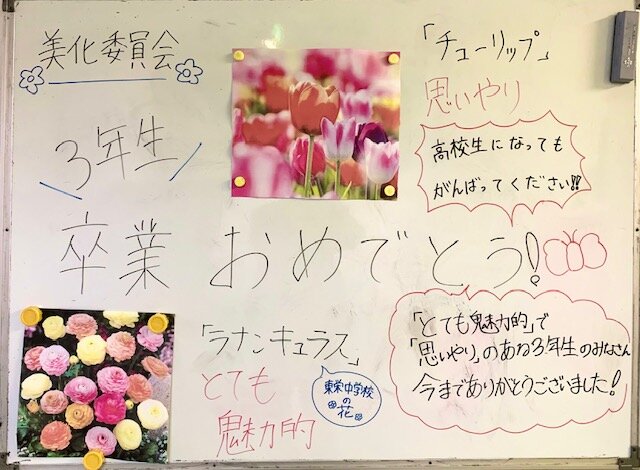 美化委員会
3年生
卒業おめでとう!
「チューリップ」
思いやり
高校生になっても
がんばってください!!
「ラナンキュラス」
とても
魅力的
東栄中学校
の
花
「とても魅力的」で
「思いやり」のある3年生のみなさん
今までありがとうございました!